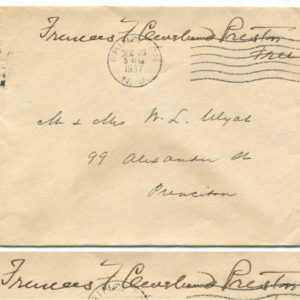 Frances F Cleveland Preston
Free
PRINCETON
DEC 20
5 PM
1937
N. J.
Mr & Mrs W. L. Ulyat
99 Alexander St
Princeton
Frances F Cleveland Preston